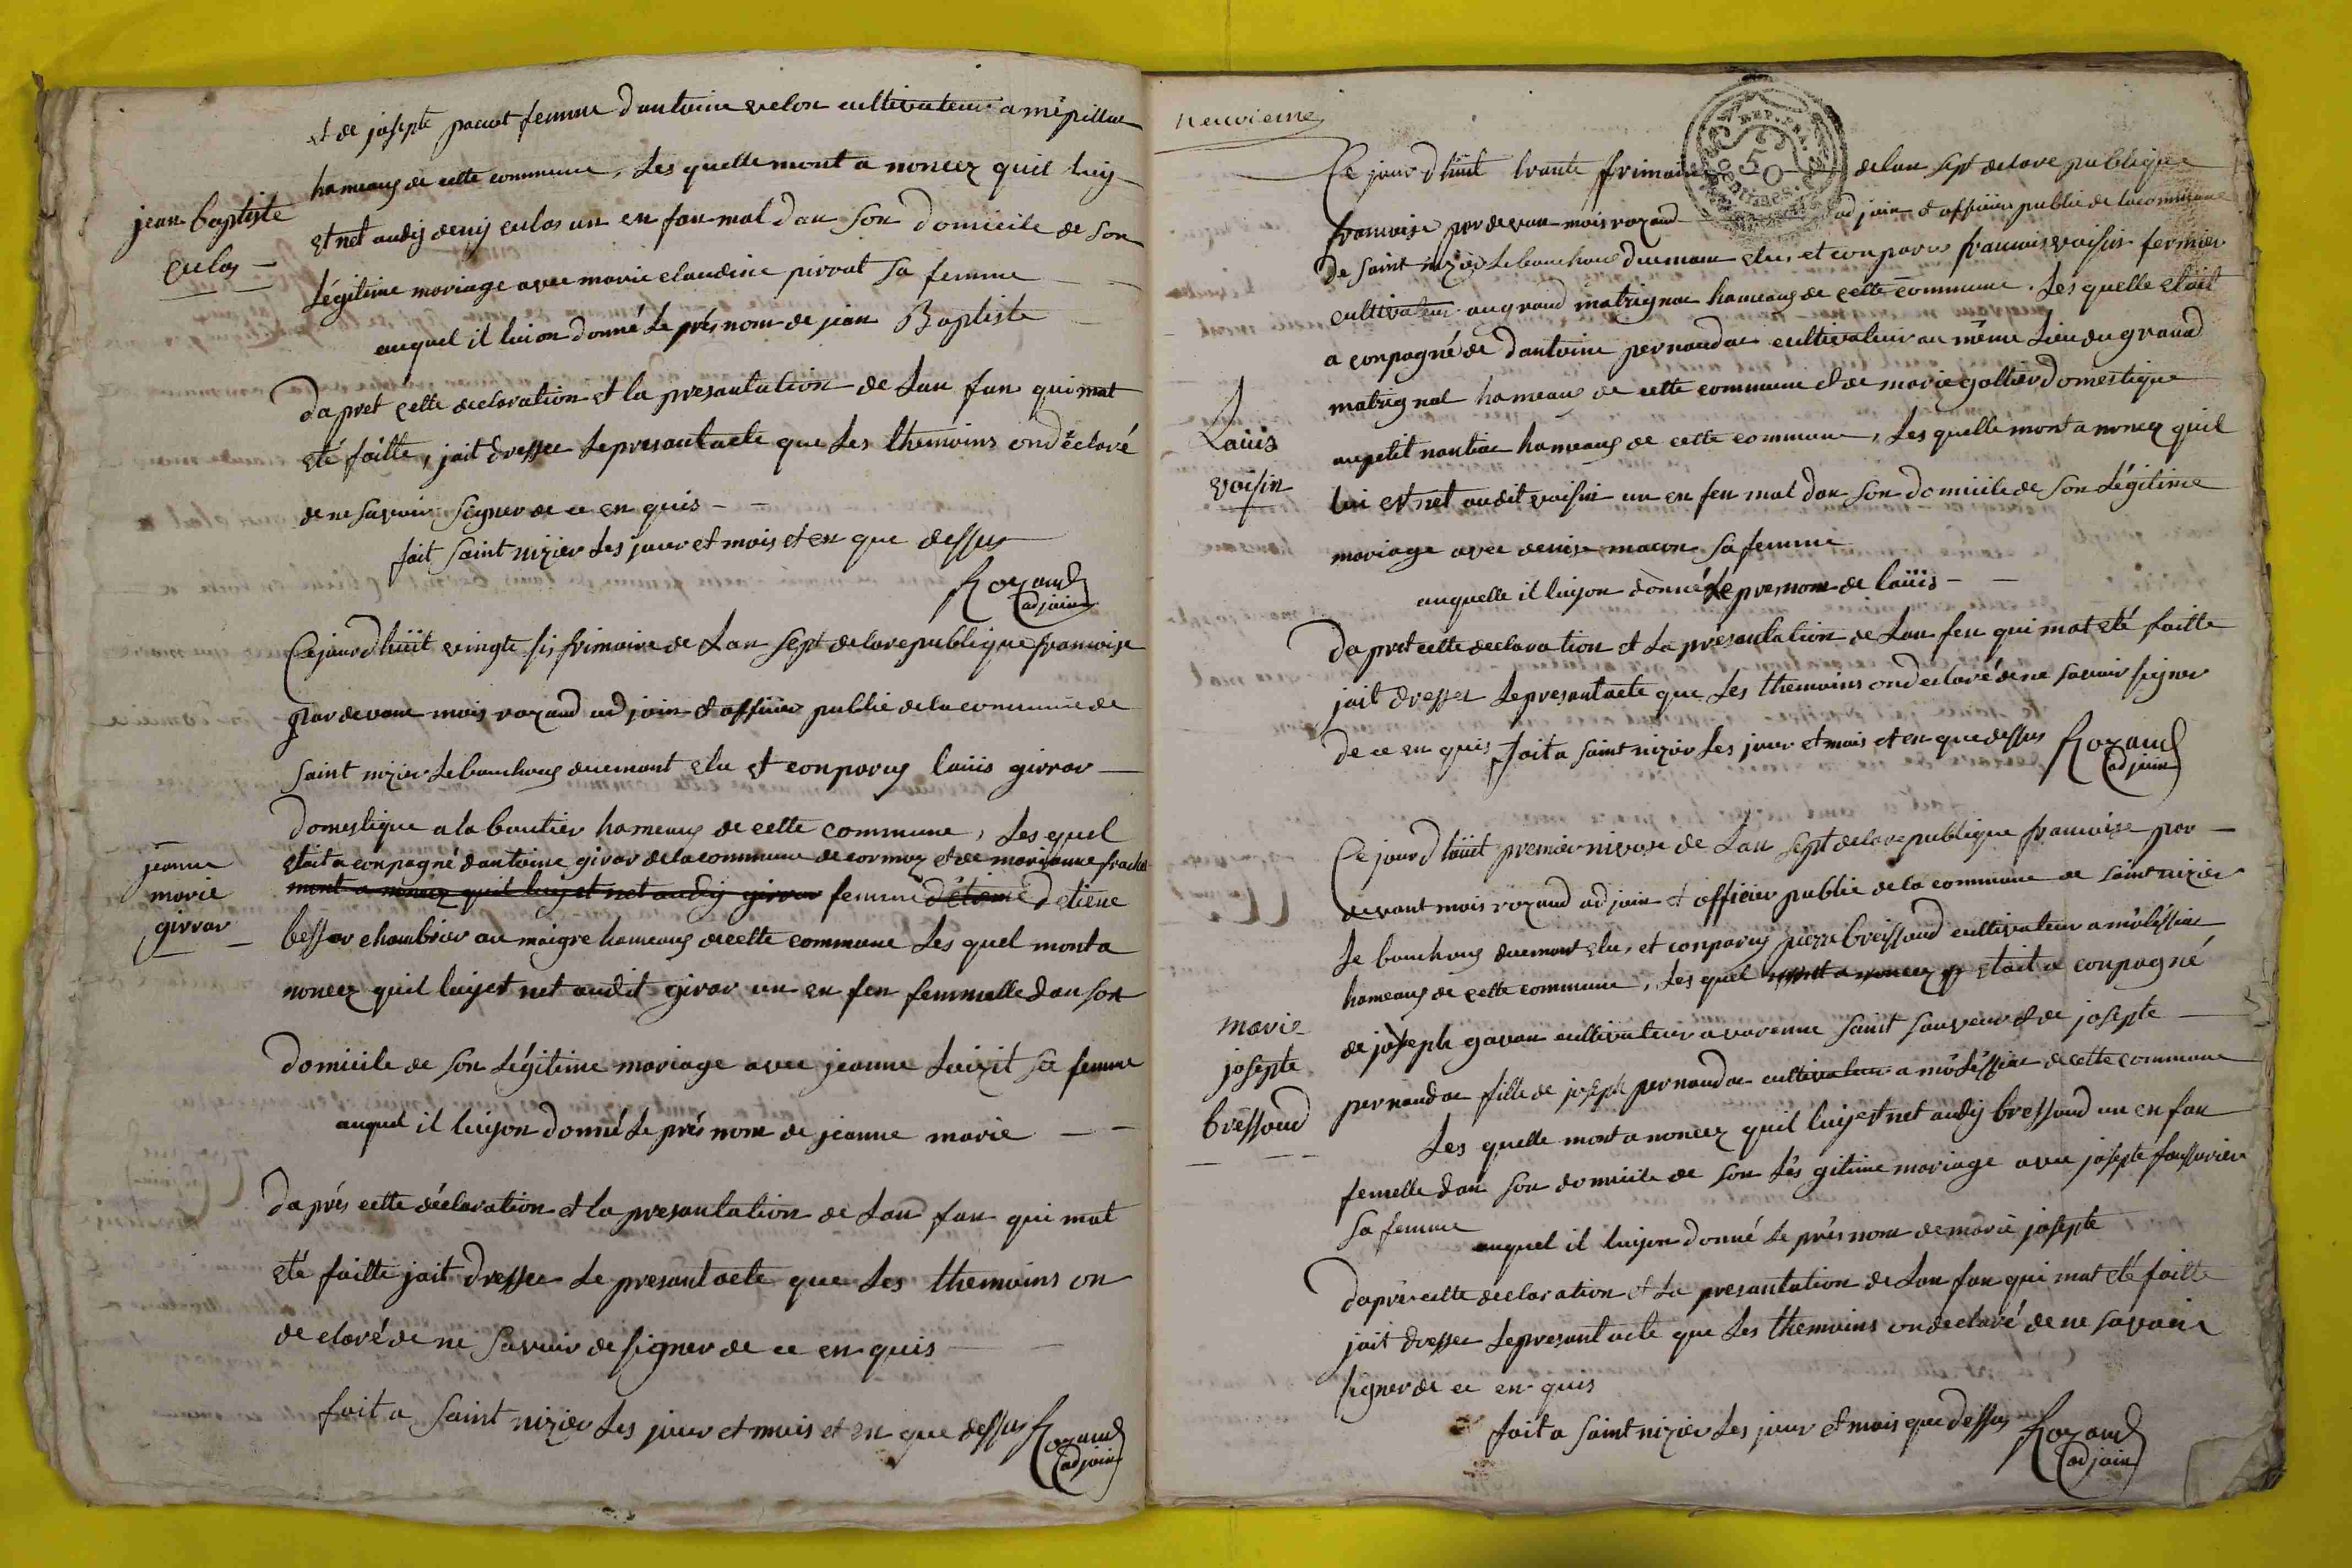 et de josepte pacut femme dantoine velon cultivateur a mépillac
hameaux de cette commune, Les quelle mont a noncez quil luy
jean baptiste
culas
et net audij denij culas un en fan mal dan son domicile de son
Légitime mariage avec marie claudine pirrat sa femme
auquel il lui on donné Le prés nom de jean Baptiste
da pret cette declaration et la presantation de Lan fan qui mat
eté faitte, jait dressee Le presant acte que Les themoins on déclaré
de ne savoir signer de ce en quis
fait saint nizier Les jour et mois et en que dessus
Rozand
adjoin
Ce jourd huit vingte sis frimaire de Lan sept de la republique francoise
par devane mois rozand adjoin et officier public de la commune de
saint nizier Le bouchoux duemant elu et conparus laüis girrar
domestique a la boutier hameaux de cette commune, Les quel
jeanne
marie
girrar
etait a conpagné dantoine girar de la commune de cormoz et de marianne frachet
mont a noncez quil luij et net audij girrar femme détiene detiene
bessar chambrier au maigre hameaux de cette commune Les quel mont a
noncez quil luij et net audit girar un en fen femmelle dan son
domicile de son Légitime mariage avec jeanne Loizit sa femme
auquel il luij on donné Le prés nom de jeanne marie
da prés cette déclaration et la presantation de Lan fan qui mat
eté faitte jait dressee Le presant acte que Les themoins on
de claré de ne savoir de signer de ce en quis
fait a saint nizier Les jour et mois et en que dessus Rozand
adjoin
neuvieme
REP. FRA.
50
centimes.
Ce jour d huit trante frimaire de lan sept de la re publique
francoise par de van mois rozand ad join et officier public de la commune
de saint nizier Le bouchoux duemam elu, et conparus francois voisin fermier
cultivateur au grand matrignac hameaux de cette commune. Les quelle etait
a conpagné de dantoine pernaudac cultivateur au même Lieu du grand
matrignat hameaux de cette commune et de marie galtier domestique
Laüis
voisin
au petit nantiac hameaux de cette commune, Les quelle mont a noncez quil
lui et net audit voisin un en fen mal dan son domicile de son Légitime
mariage avec denise macon sa femme
auquelle il luij on donné Le pre nom de laüis
da pret cette declaration et La présantation de Lan fen qui mat eté faitte
jait dressee Le presant acte que Les themoins on declaré de ne savoir signer
de ce en quis fait a saint nizier Les jour et mois et en que dessus Rozand
adjoin
Ce jourd huit premier nivose de Lan sept de la re publique francoise par
devant mois rozand ad join et officier public de la commune de saint nizier
Le bouchoux duemant elu, et conparus pierre breissaud cultivateur a molissiac
hameaux de cette commune, Les quel mont a noncez q etait a conpagné
marie
josepte
bressaud
de joseph gavan cultivateur a varenne saint sauveur et de josepte
pernaudac fille de joseph pernaudac cultivateur a molessiac de cette commune
Les quelle mont a noncez quil luij et net audij bressaud un en fan
femelle dan son domicile de son Lés gitime mariage avec josepte fausurier
sa femme auquel il luij on donné Le prés nom de marie josepte
da pré cette declaration et La presantation de Lan fan qui mat eté faitte
jait dressee Le presant acte que Les themoins on declaré de ne savoir
signer de ce en quis
fait a saint nizier Les jour et mois que dessus Rozand
adjoin